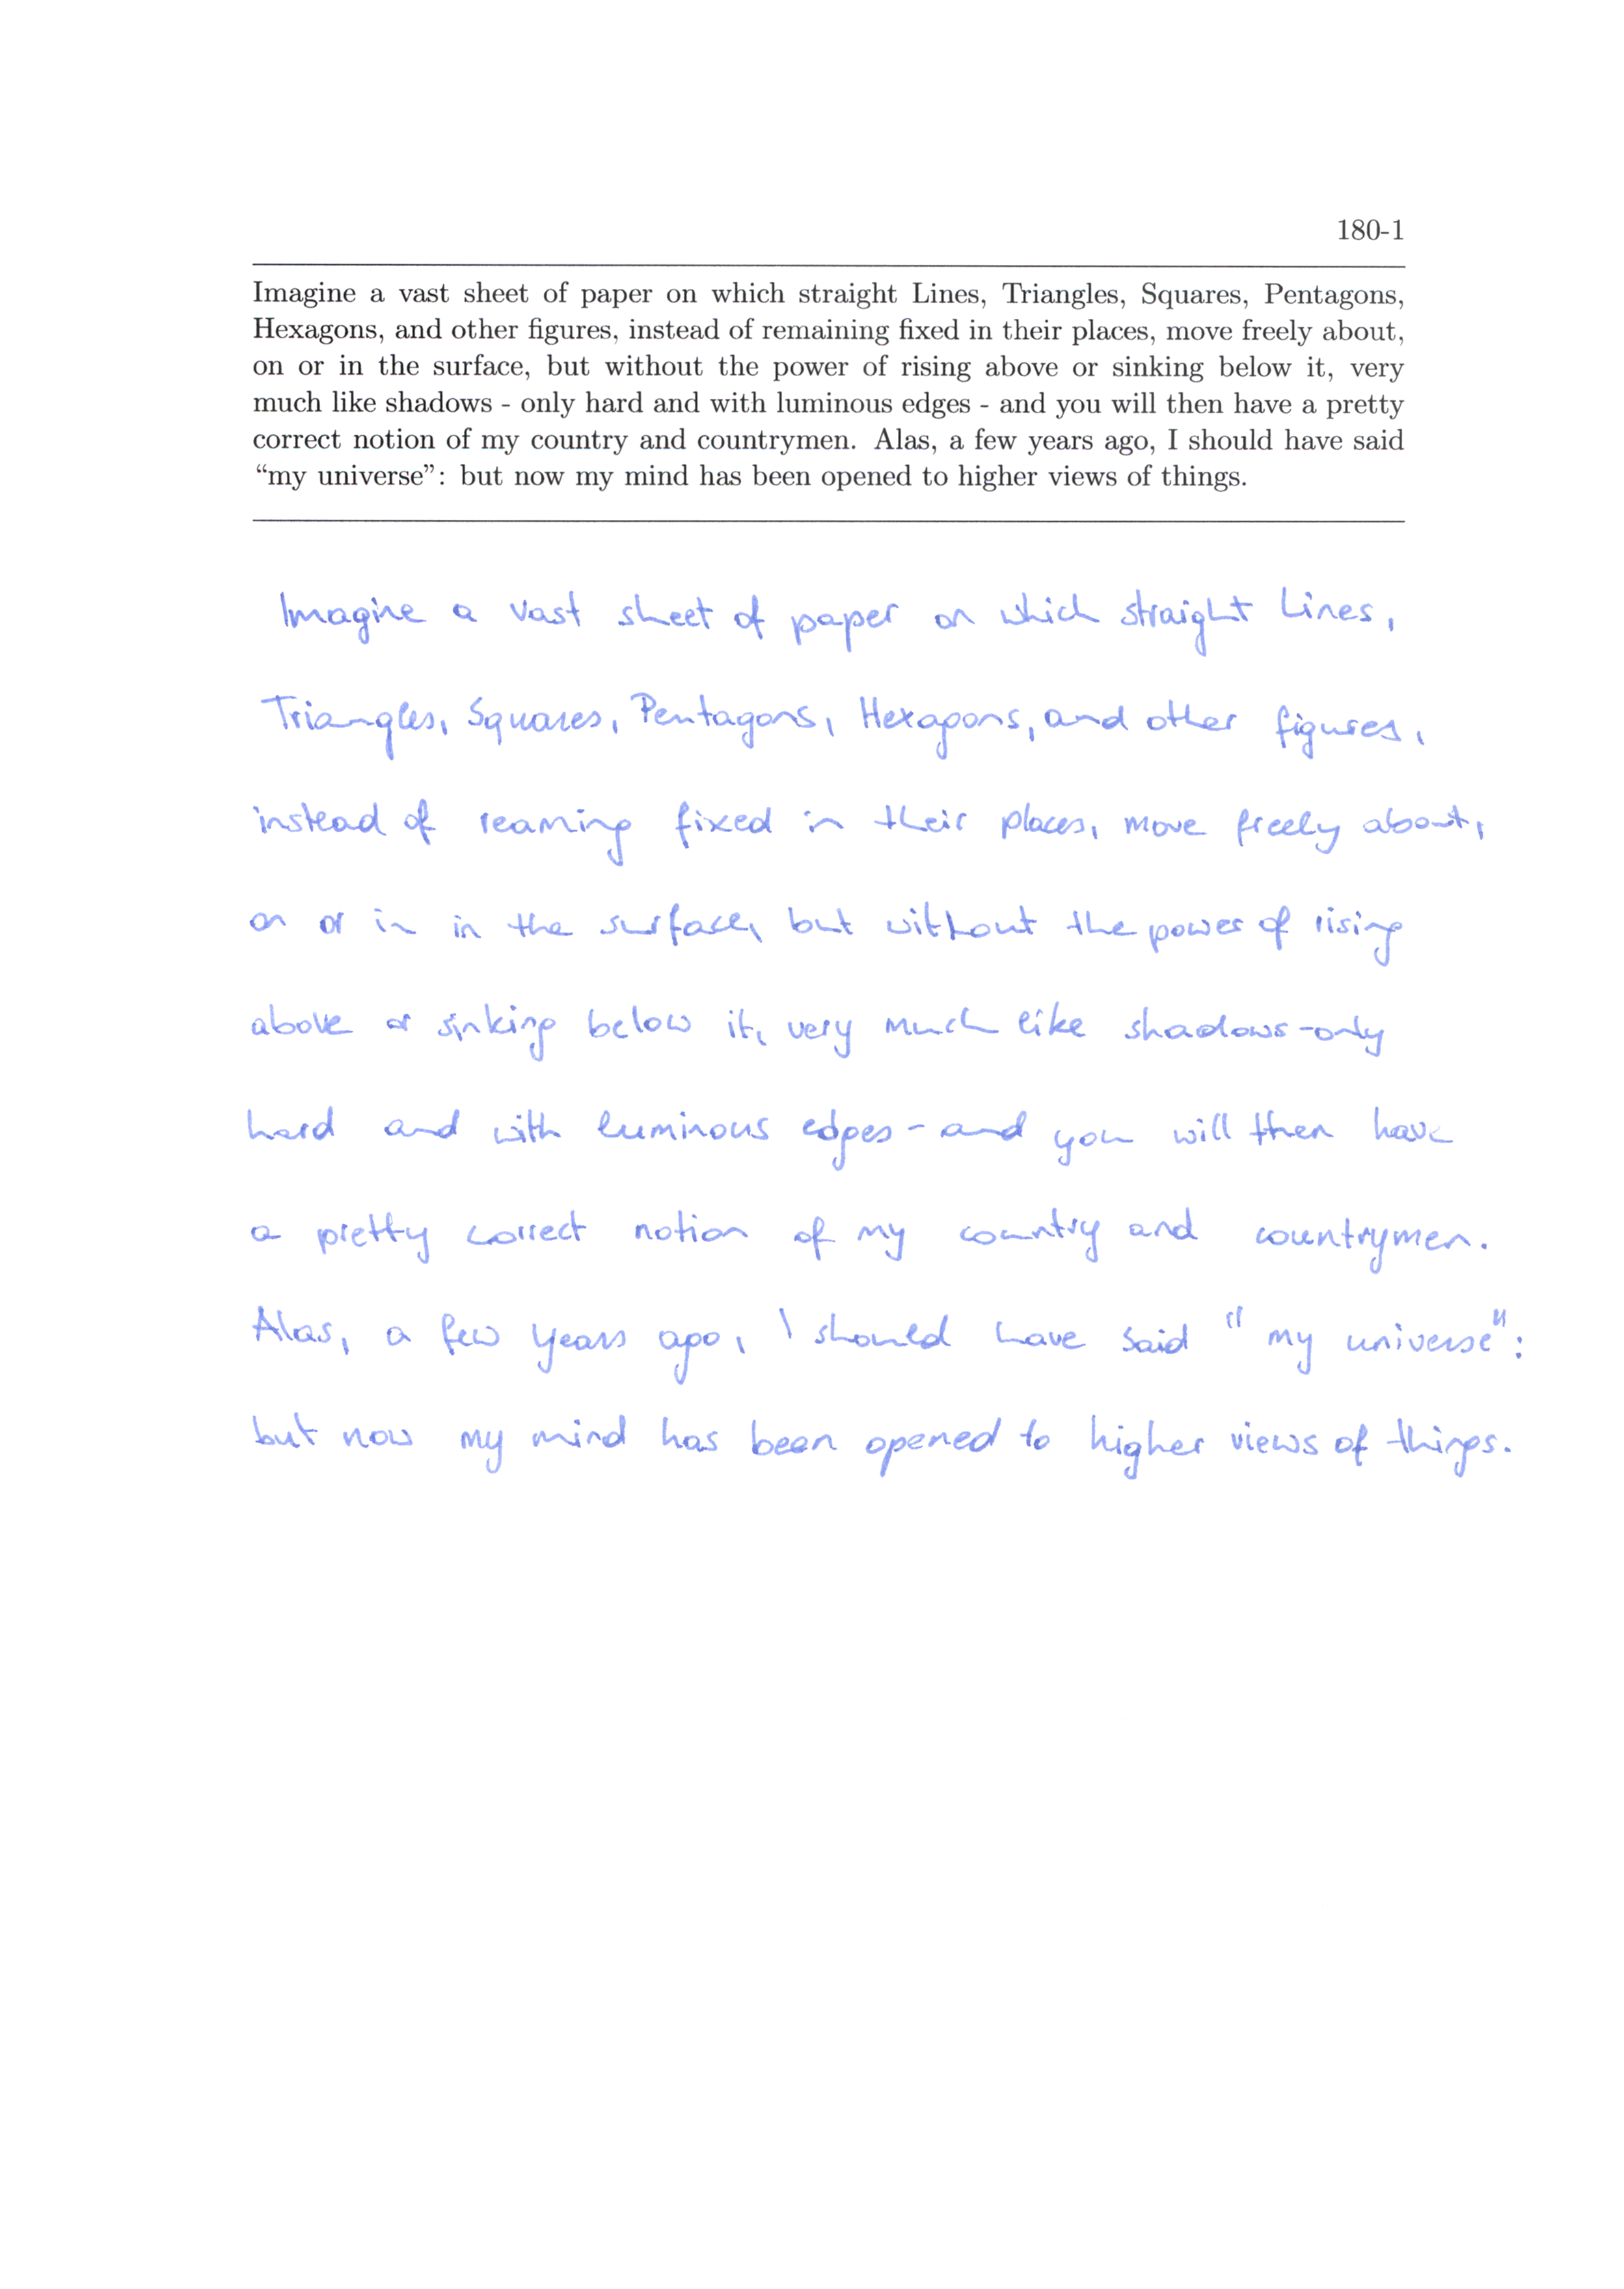 180-1
Imagine a vast sheet of paper on which straight Lines, Triangles, Squares, Pentagons,
Hexagons, and other figures, instead of remaining fixed in their places, move freely about,
on or in the surface, but without the power of rising above or sinking below it, very
much like shadows - only hard and with luminous edges - and you will then have a pretty
correct notion of my country and countrymen. Alas, a few years ago, I should have said
“my universe”: but now my mind has been opened to higher views of things.
Imagine a vast sheet of paper on which straight Lines,
Triangles, Squares, Pentagons, Hexagons, and other figures,
instead of reaming fixed in their places, move freely about,
on or in in the surface, but without the power of rising
above or sinking below it, very much like shadows-only
hard and with luminous edges - and you will then have
a pretty correct notion of my country and countrymen.
Alas, a few years ago, I should have said "my universe":
but now my mind has been opened to higher views of things.